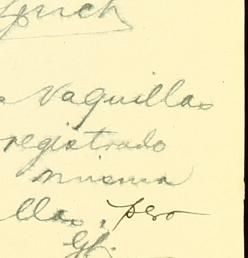 Lynch
Vaquillas
registrado
misma
llas, pero